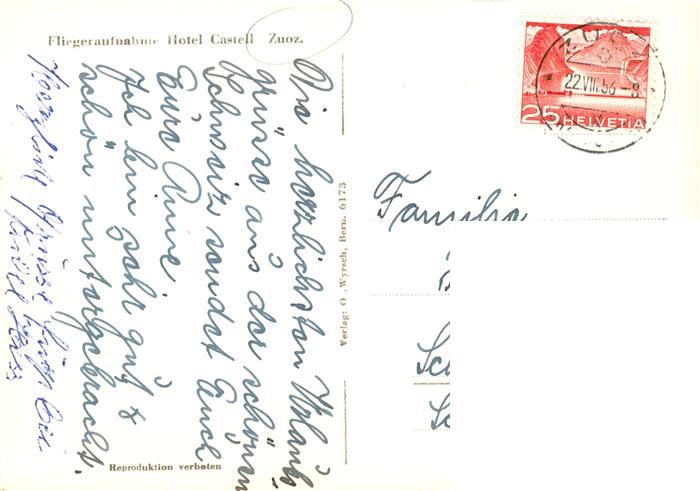 Fliegeraufnahme Hotel Castell Zuoz.
Die herzlichsten Urlaubs
grüsse aus der schönen
Schweiz sendet Euch
Eure Anne.
Ich bin sehr gut &
schön untergebracht.
Herzliche Grüsse
Verlag: O. Wyrsch, Bern. 6173
Reproduktion verboten
22.VIII.56-8
25 HELVETIA
Familie